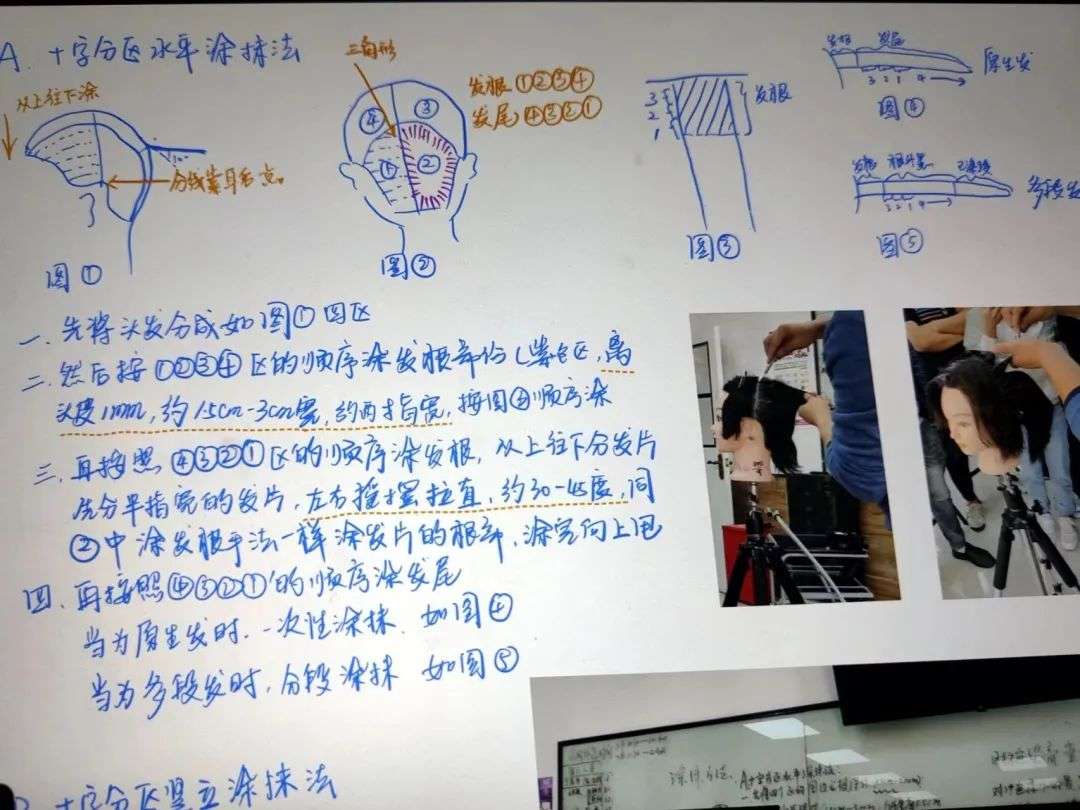 A. 十字分区水平涂抹法
从上往下涂
分线靠耳后点。
图①
三角形
发根①②③④
发尾④③②①
④ ③
① ②
图②
3
2
1
发根
图③
发根
3 2 1 4
原生发
图④
发根
3 2 1 4
多段发
图⑤
一.先将头发分成如图①四区
二.然后按①②③④区的顺序涂发根部份(紫色区,离
头皮1mm,约1.5cm-3cm宽,约两指宽,按图③顺序涂
三.再按照④③②①区的顺序涂发根,从上往下分发片
先分半指宽的发片,左右摇摆拉直,约30-45度,同
②中涂发根手法一样涂发片的根部,涂完向上甩
四.再按照④③②①的顺序涂发尾
当为原生发时.一次性涂抹.如图④
当为多段发时,分段涂抹 如图⑤
十字分区竖立涂抹法
涂抹方法.